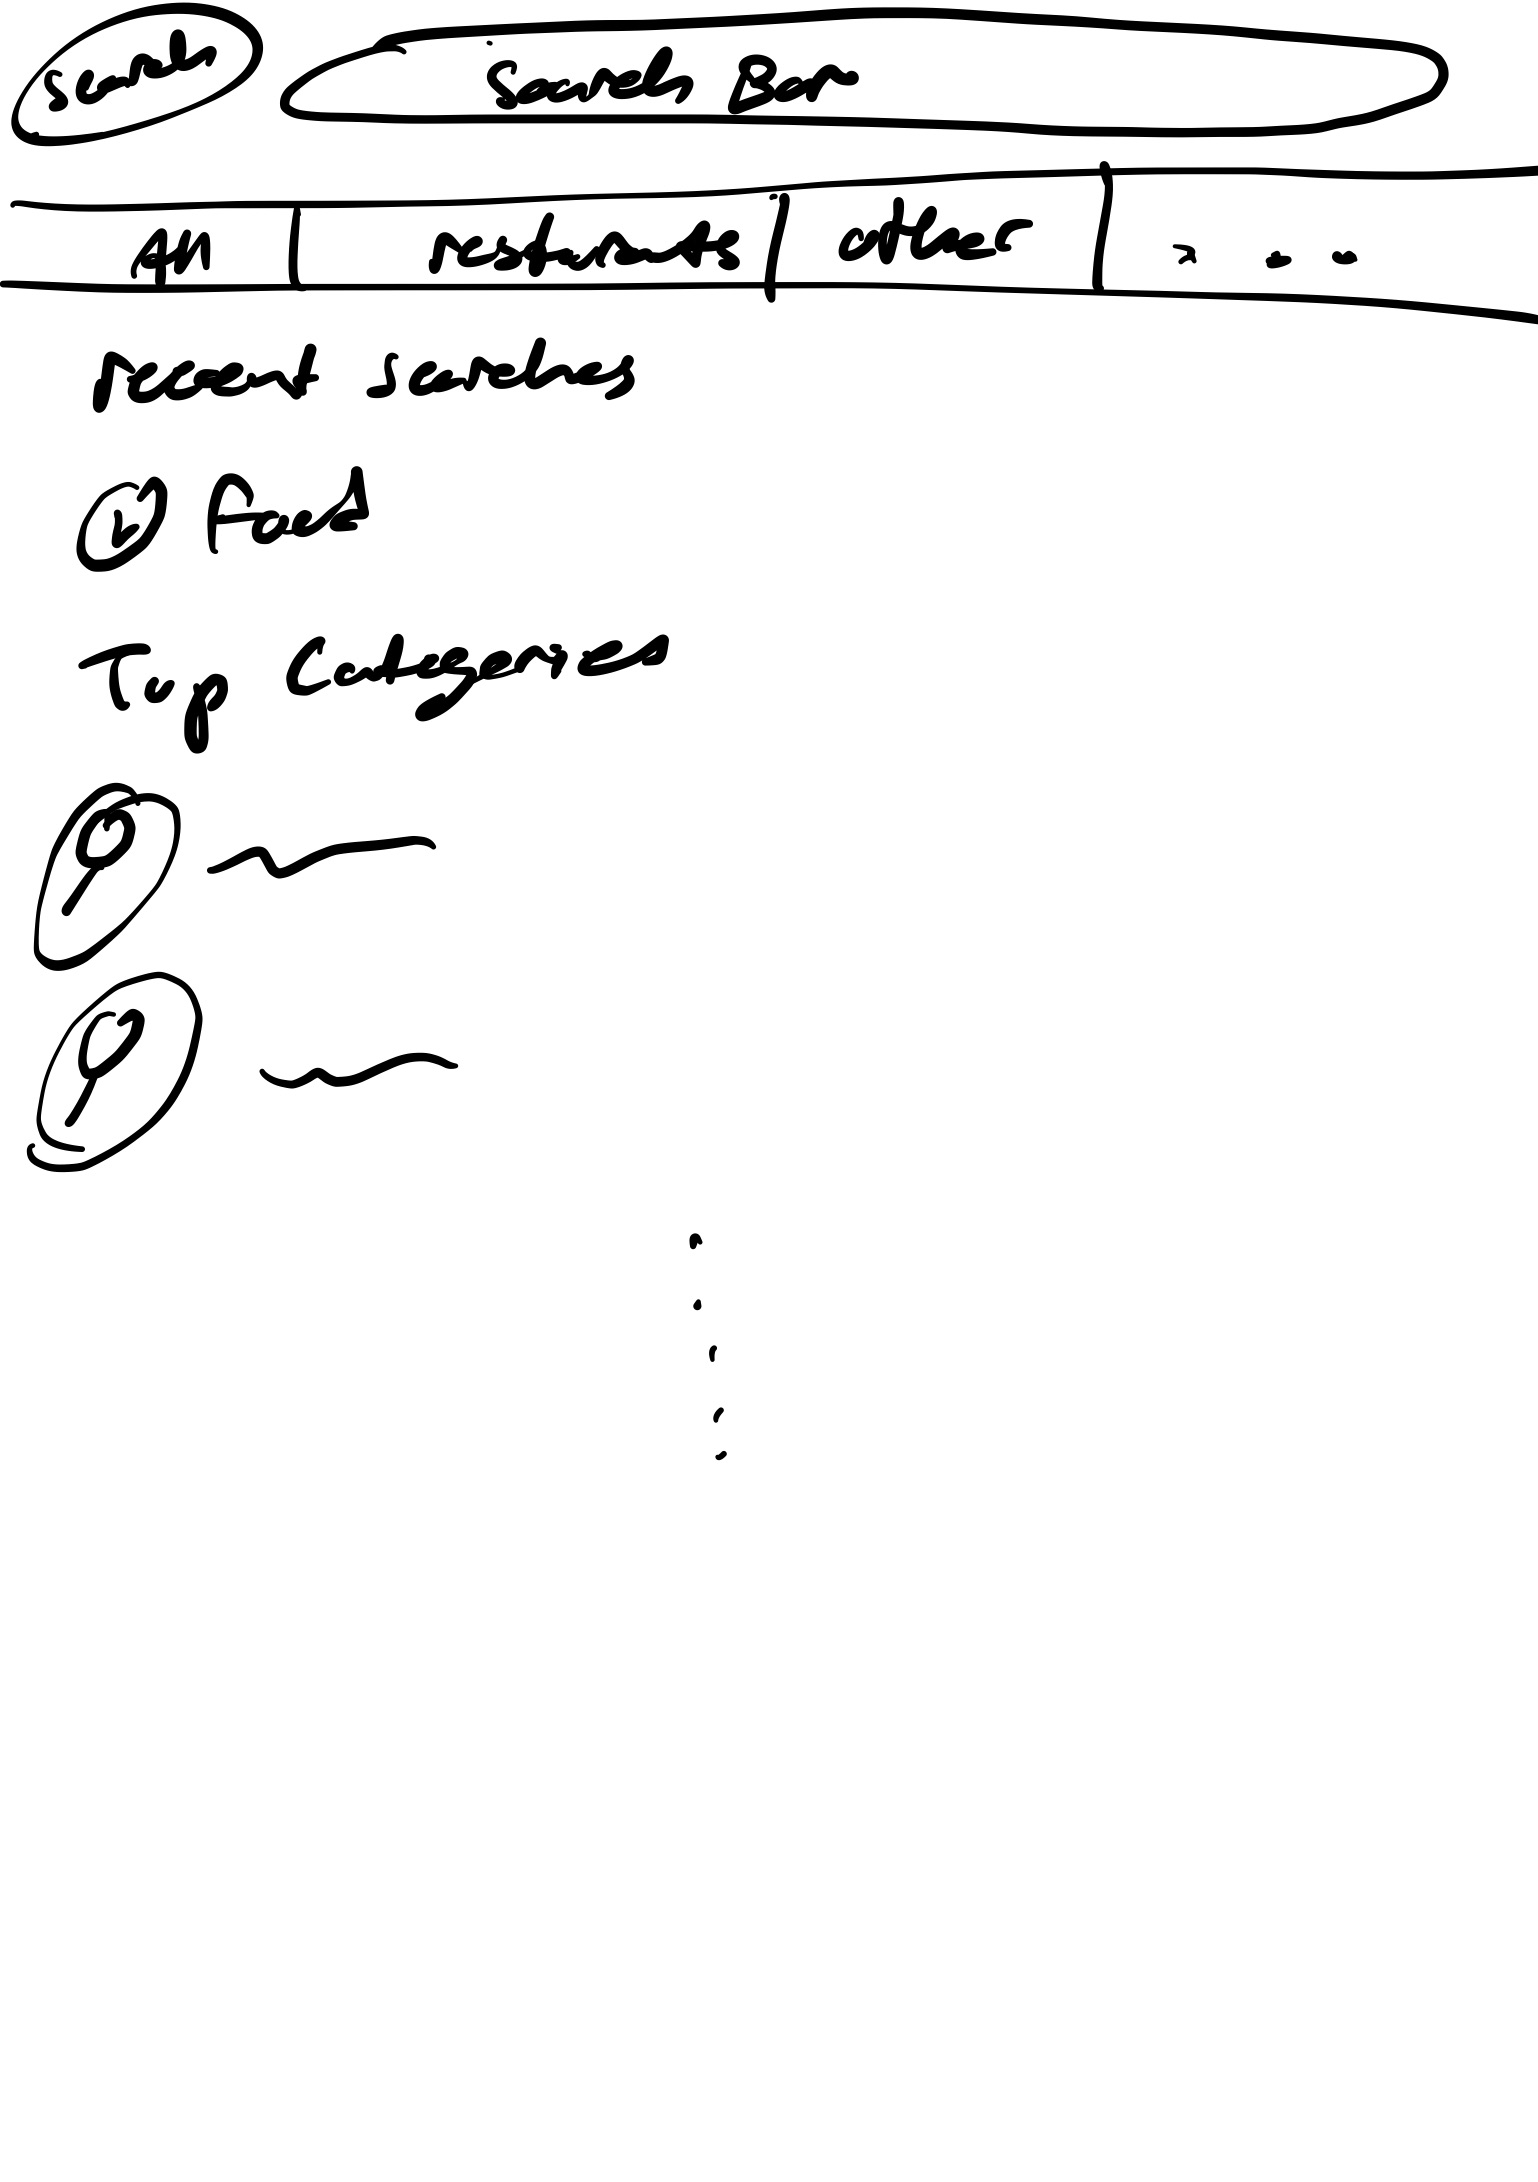 search
Search Bar
All resturants other ...
recent searches
food
Top Categories